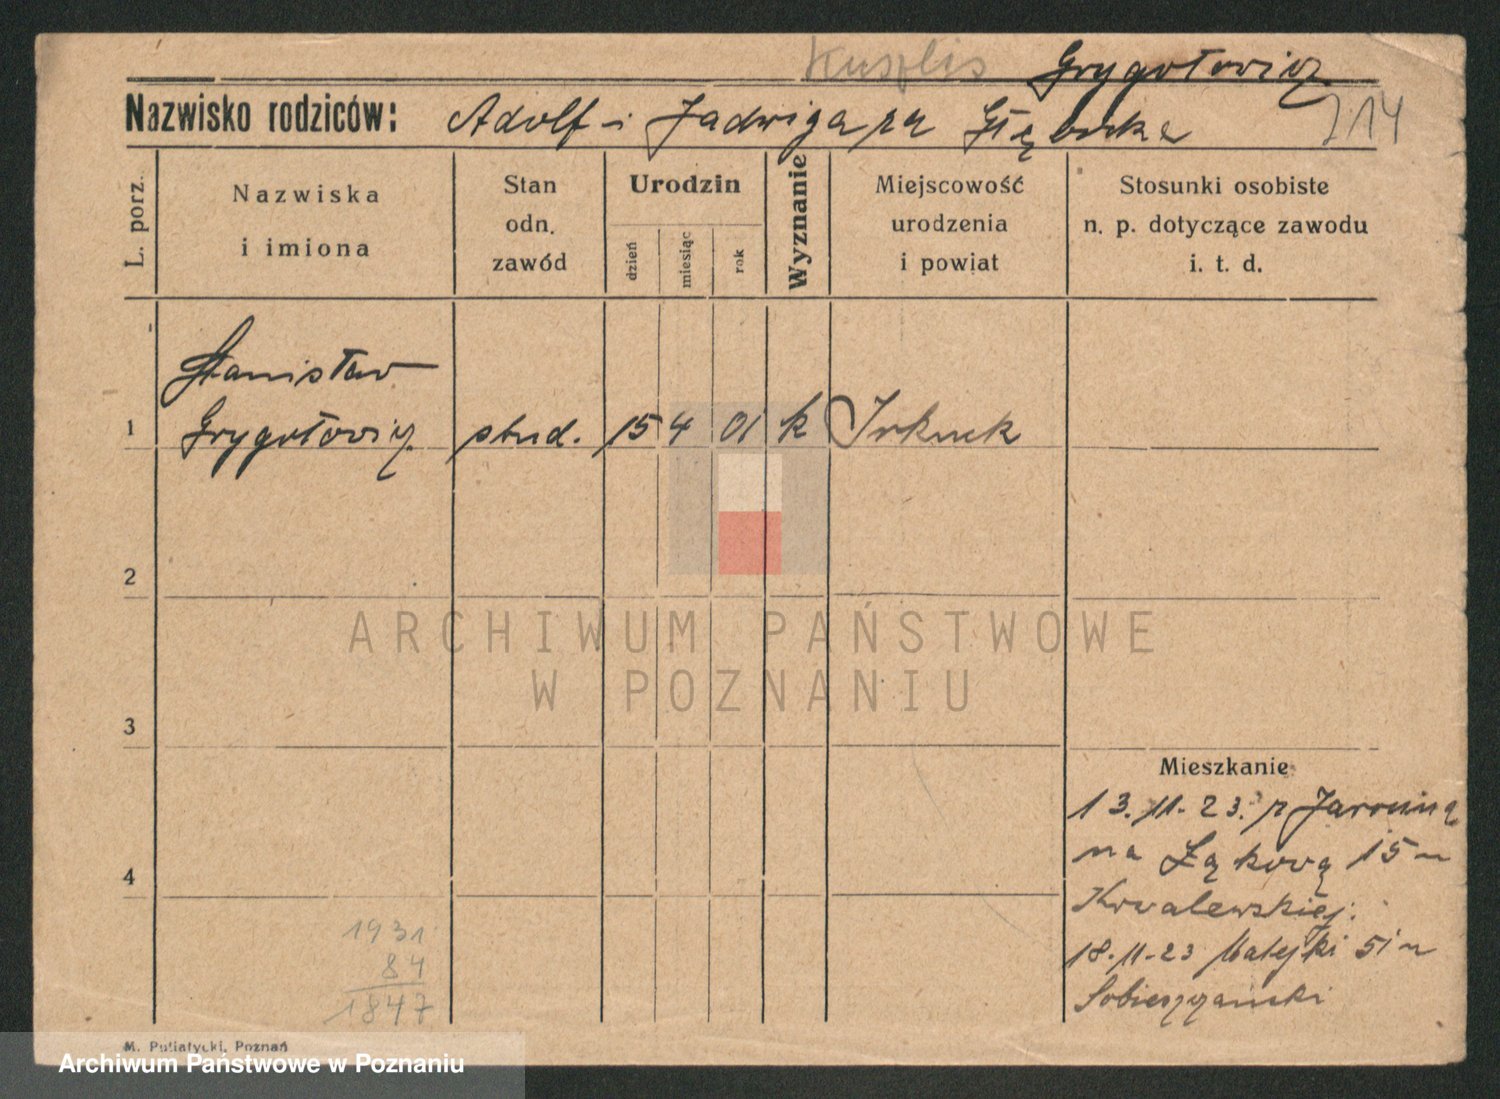 Grygołowicz
Nazwisko rodziców: Adolf i Jadwiga za Głębocka
714
L. porz.
Nazwiska
i imiona
Stan
odn.
zawód
Urodzin
dzień
miesiąc
rok
Wyznanie
Miejscowość
urodzenia
i powiat
Stosunki osobiste
n. p. dotyczące zawodu
i. t. d.
Stanisław
1 Grygołowicz stud. 15 4 01 k Irkuck
2
3
4
Mieszkanie
13.11.23. z Jarocina
na Łąkową 15 u
Kowalewskiej.
18.11.23 Matejki 51 u
Sobieszczański
1931
84
1847
M. Putiatycki, Poznań
ARCHIWUM PAŃSTWOWE
W POZNANIU
Archiwum Państwowe w Poznaniu